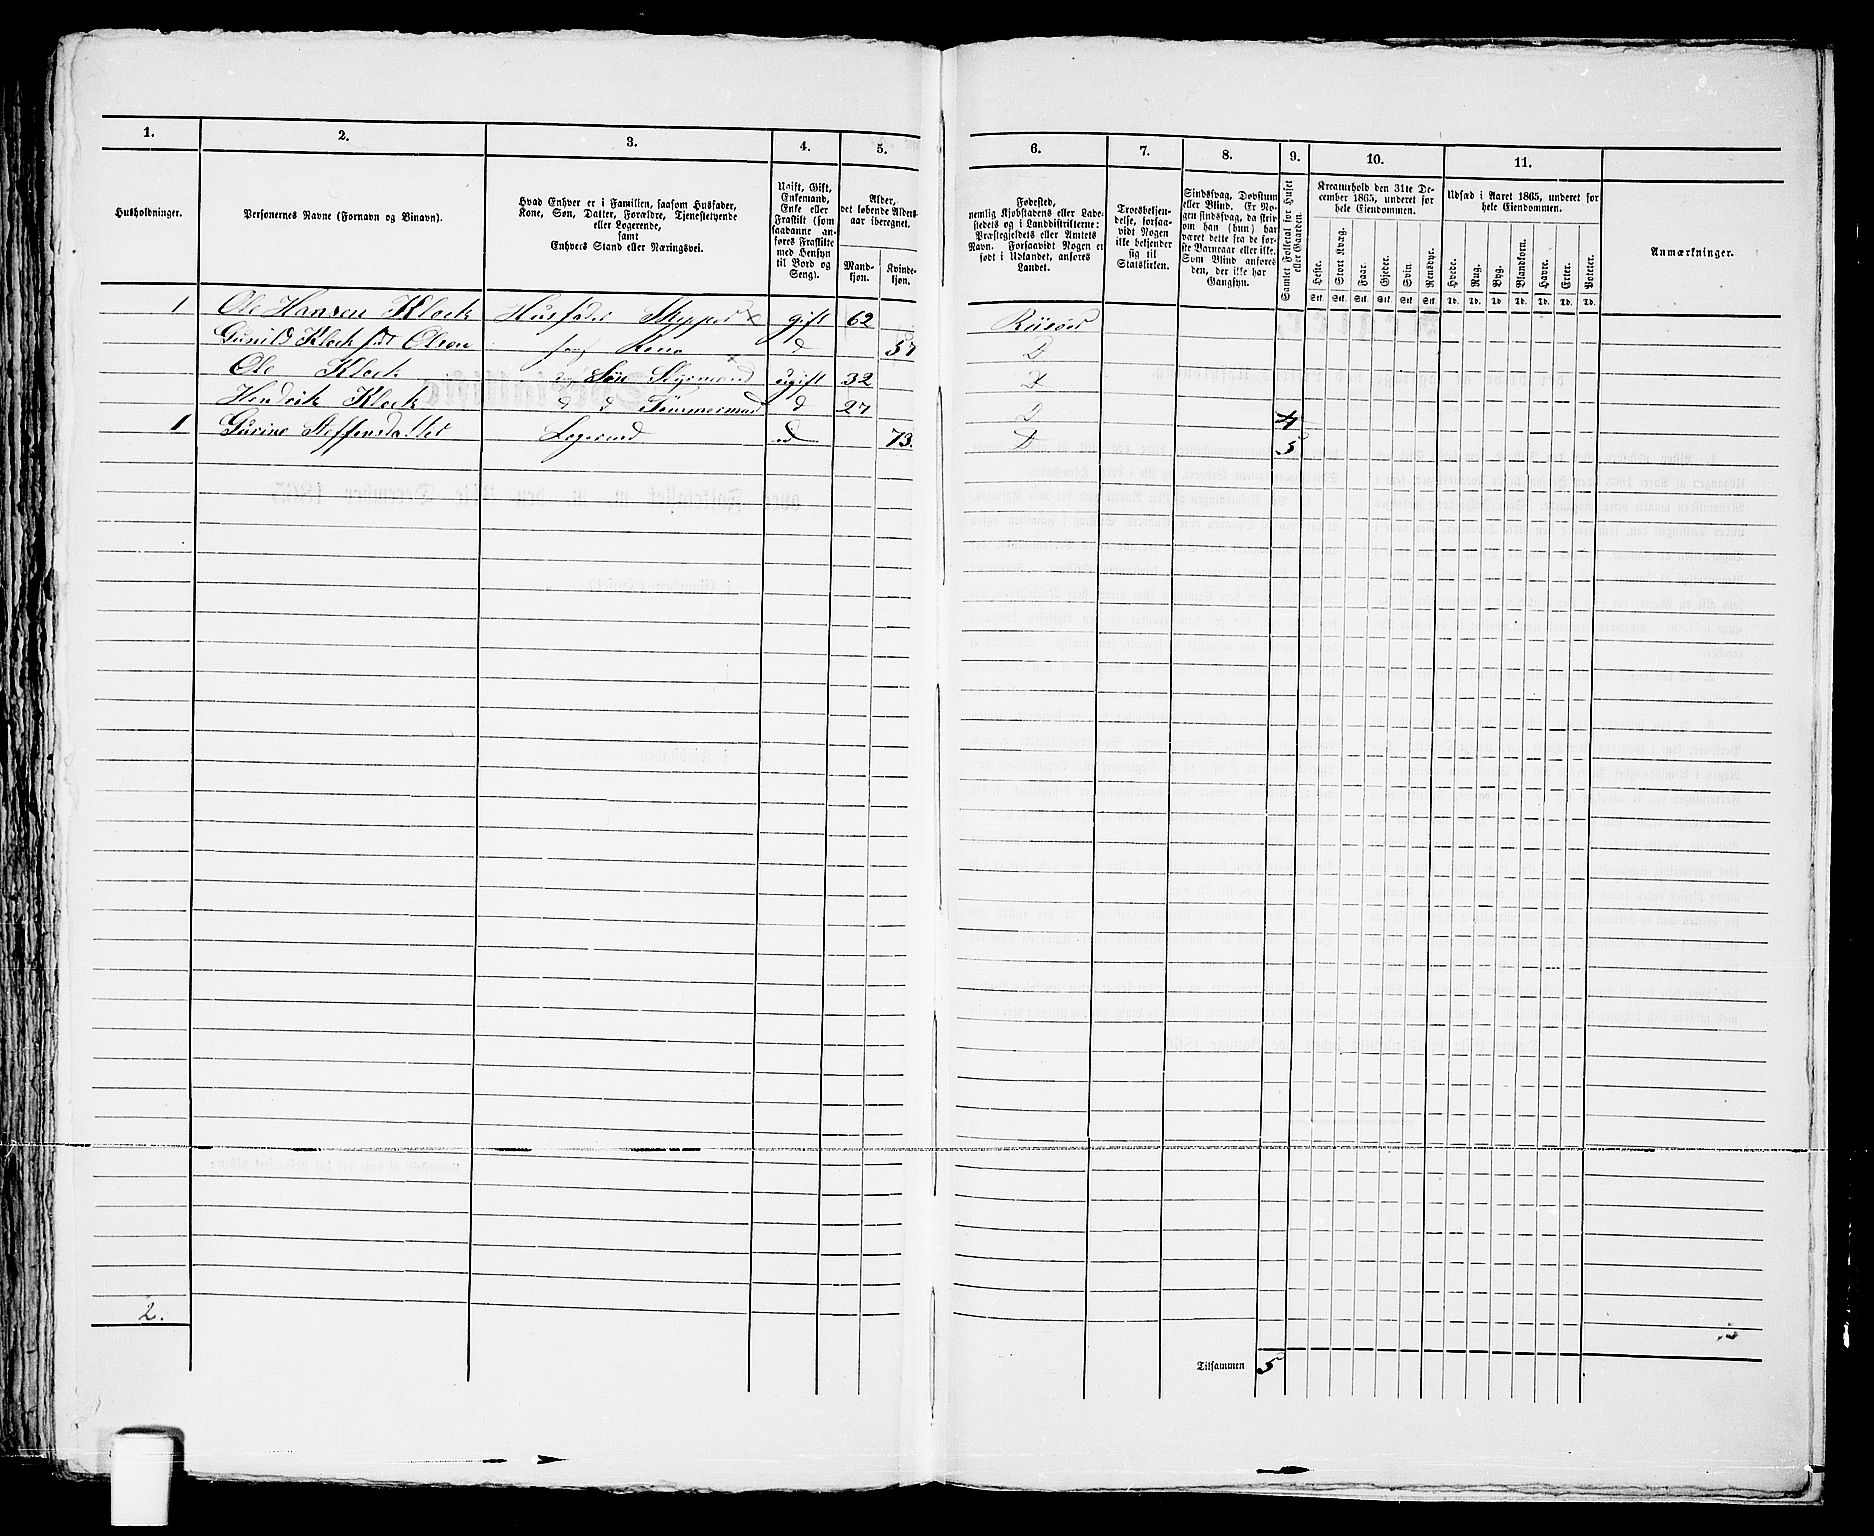 1. 2. 3. 4. 5. 6. 7. 8. 9. 10. 11.
Husholdninger.
Personernes Navne (Fornavn og Binavn).
Hvad Enhver er i Familien, saasom Husfader,
Kone, Søn, Datter, Forældre, Tjenestetyende
eller Logerende,
samt
Enhvers Stand eller Næringsvei.
Ugift, Gift,
Enkemand,
Enke eller
Fraskilt (som
saadanne an-
føres Fraskilte
med Hensyn
til Bord og
Seng).
Alder,
det løbende Alders-
aar iberegnet.
Mand-
kjøn.
Kvinde-
kjøn.
Fødested,
nemlig Kjøbstadens eller Lade-
stedets og i Landdistrikterne:
Præstegjeldets eller Amtets
Navn. Forsaavidt Nogen er
født i Udlandet, anføres
Landet.
Troesbekjen-
delse, forsaa-
vidt Nogen
ikke bekjender
sig til
Statskirken.
Sindssvag, Døvstum
eller Blind. Er No-
gen sindssvag, da skriv
om han (hun) har
været dette fra de før-
ste Barneaar eller ikke.
Som Blind anføres
den, der ikke har
Gangsyn.
Samlet Folketal for Huset
eller Gaarden.
Kreaturhold den 31te De-
cember 1865, underet for
hele Eiendommen.
Heste. Stort Kvæg. Faar. Gjeder. Svin. Rensdyr.
Stk. Stk. Stk. Stk. Stk. Stk.
Udsæd i Aaret 1865, underet for
hele Eiendommen.
Hvede. Rug. Byg. Blandkorn. Havre. Erter. Poteter.
Td. Td. Td. Td. Td. Td. Td.
Anmærkninger.
1 Ole Hansen Klock Husfader Skipper x gift 62 Riisøer
Gunild Klock født Olsen hans Kone d 57 D
Ole Klock Søn Styrmand ugift 32 D
Hendrik Klock d d Tømmermand d 27 D 4
1 Gurine Steffensdatter Logerend d 73. D 5
2.
Tilsammen 5